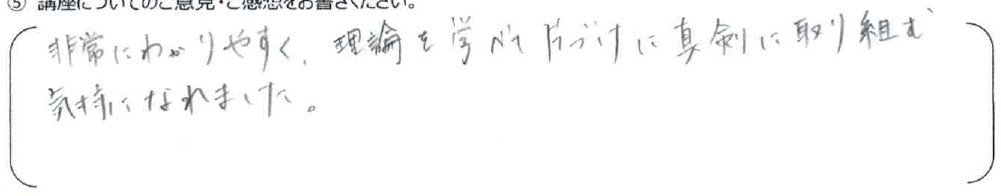 ⑤ 講座についてのご意見・ご感想をお書きください。
非常にわかりやすく、理論を学べて片づけに真剣に取り組む
気持になれました。